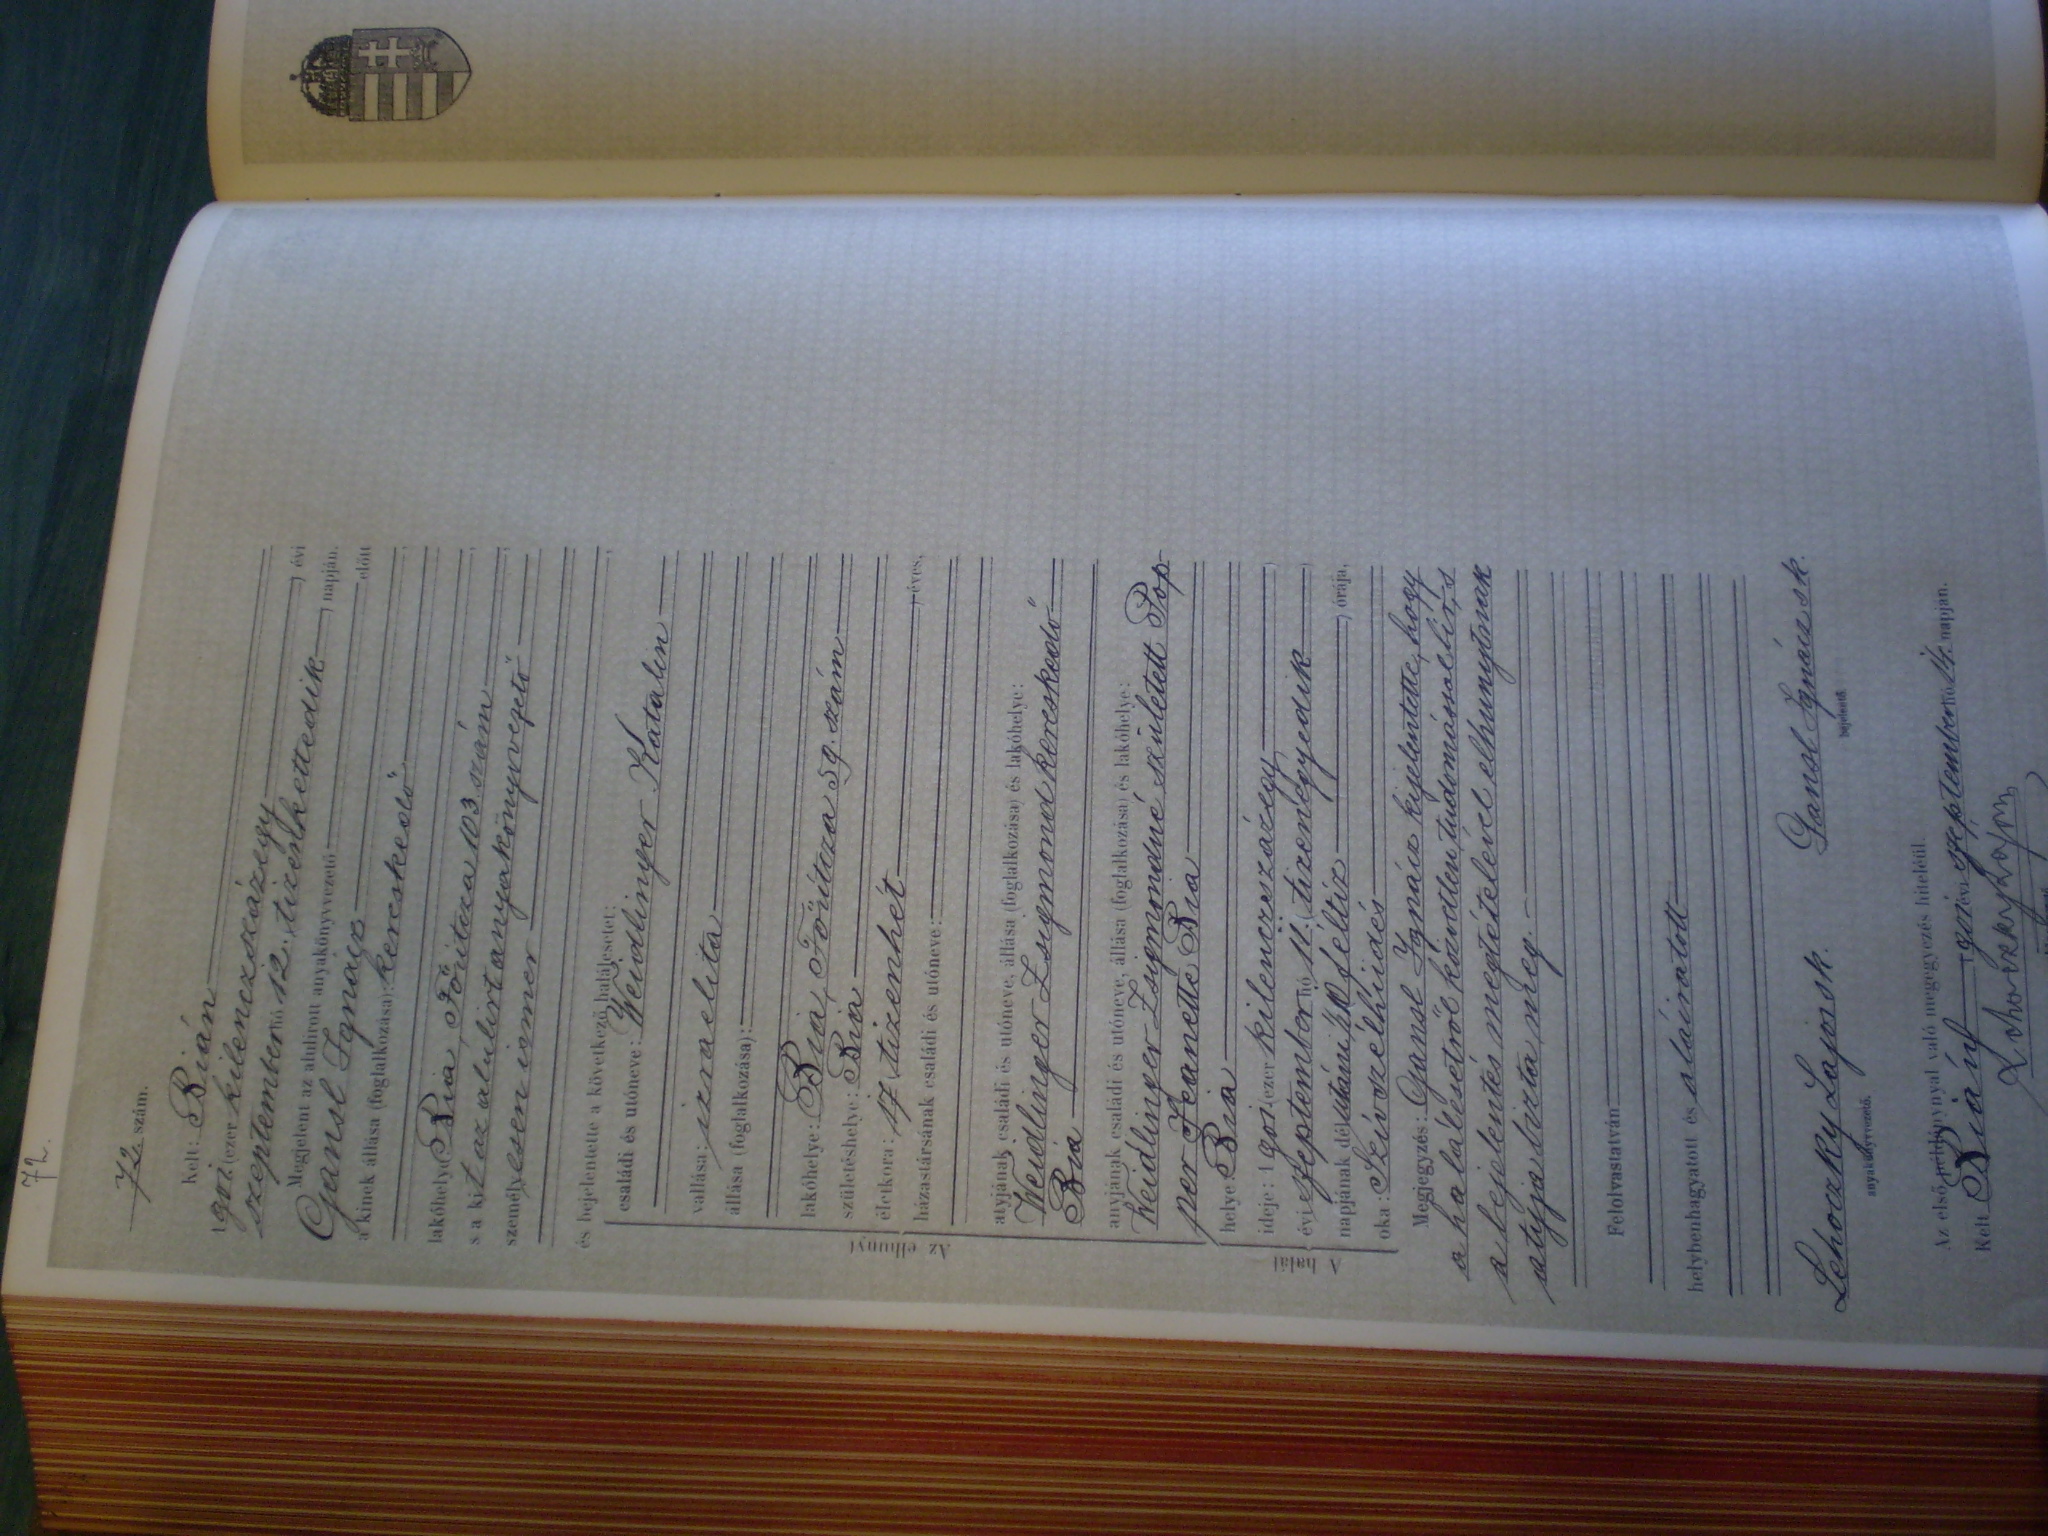 72.
72. szám.
Kelt: Bián
1901 (ezer kilenczszázegy), évi
szeptember hó 12. (tizenkettedik), napján.
Megjelent az alulírott anyakönyvvezető előtt
Gansl Ignácz
a kinek állása (foglalkozása): kereskedő,
lakóhelye Bia, Főútcza 103 szám,
s a kit az alulírt anyakönyvvezető
személyesen ismer,
és bejelentette a következő halálesetet:
családi és utóneve: Weidlinger Katalin
vallása: izraelita
állása (foglalkozása):
lakóhelye: Bia, Főútcza 59. szám
születéshelye: Bia
életkora: 17 (tizenhét), éves,
házastársának családi és utóneve:
atyjának családi és utóneve, állása (foglalkozása) és lakóhelye:
Weidlinger Zsigmond kereskedő
Bia
anyjának családi és utóneve, állása (foglalkozása) és lakóhelye:
Weidlinger Zsigmondné született Pop
per Jeanette Bia
Az elhunyt
helye: Bia
ideje: 1901 (ezer kilenczszázegy)
évi szeptember hó 11. (tizenegyedik)
napjának délutáni órája,
oka: Szívszélhüdés
A halál
Megjegyzés: Gansl Ignácz kijelentette, hogy
a halálesetről közvetlen tudomással bír, s
a bejelentés megtételével elhunytnak
atyja bízta meg.
Felolvastatván
helybenhagyatott és aláíratott
Lehoczky Lajos sk. Gansl Ignácz sk.
anyakönyvvezető. bejelentő.
Az első példánynyal való megegyezés hiteléül.
Kelt Bián 1901 évi szeptember hó 14. napján.
Lehoczky Lajos